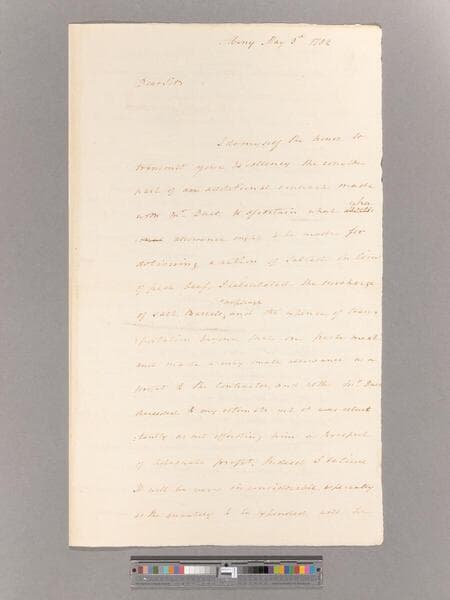 Albany May 3d 1782
Dear Sir
I do myself the honor to
transmit your Excellency the
part of an additional contract made
with Mr. Duer. To ascertain what
allowance ought to be made for
delivering a ration of salted in lieu
of fresh beef, I calculated the
of salt, Barrels, and the expence of trans-
portation beyond that on fresh meat
and made a very small allowance as a
profit to the contractor, and altho Mr. Duer
acceeded to my estimate yet it was reluc
tantly as not affording him a prospect
of adequate profit. Indeed I believe
it will be very inconsiderable especially
as the quantity to be expended will be